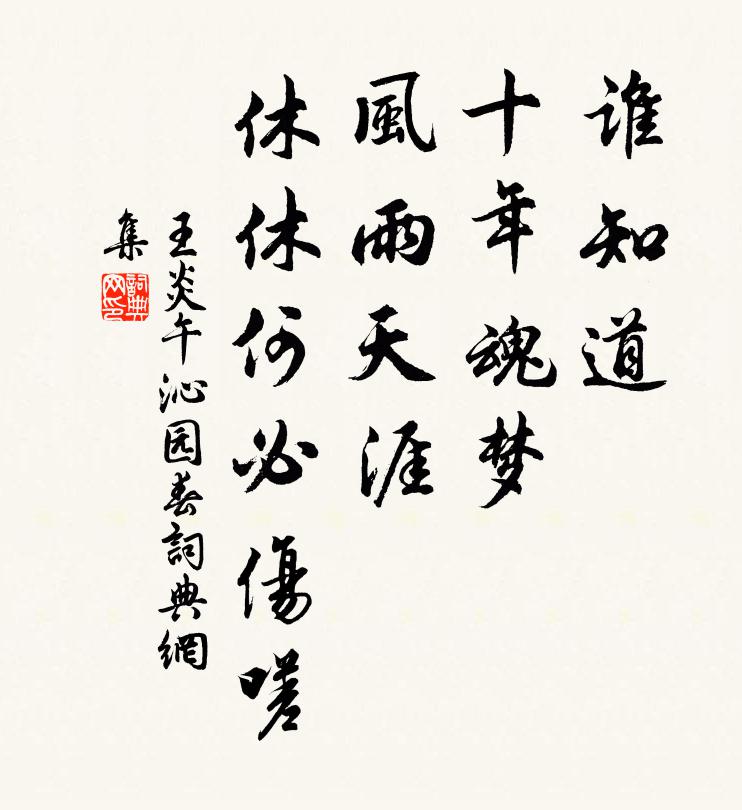 谁知道
十年魂梦
風雨天涯
休休何必傷嗟
王炎午沁园春詞典網
集
詞典网印